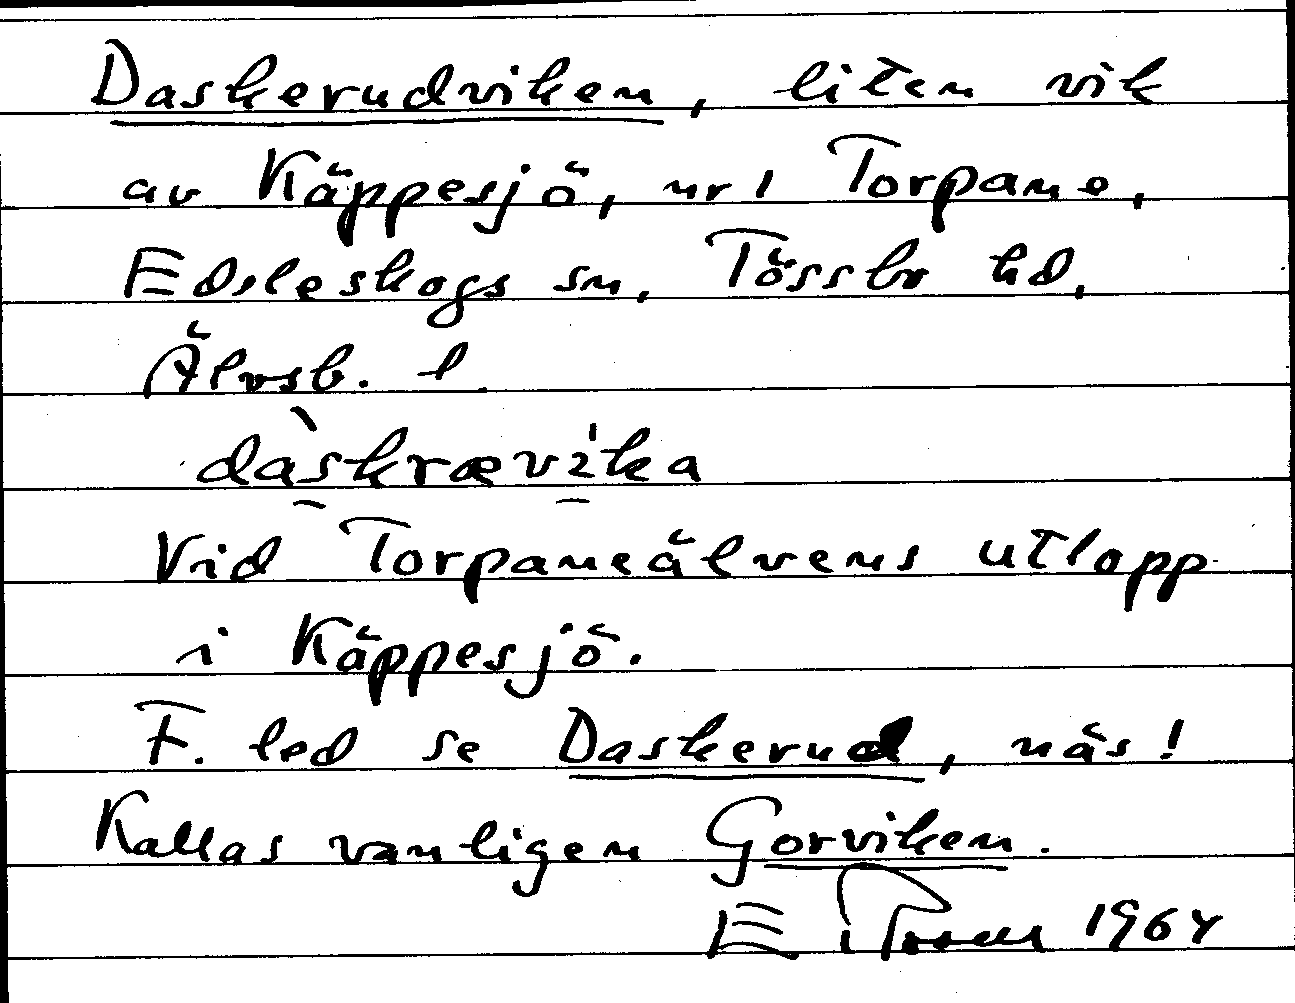 Daskerudviken, liten vik
av Käppesjö, nr 1 Torpane,
Edsleskogs sn, Tössbo hd,
Älvsb. l
dàskrævika
Vid Torpaneälvens utlopp
i Käppesjö.
F. led se Daskerud, näs!
Kallas vanligen Gorviken.
E 1964